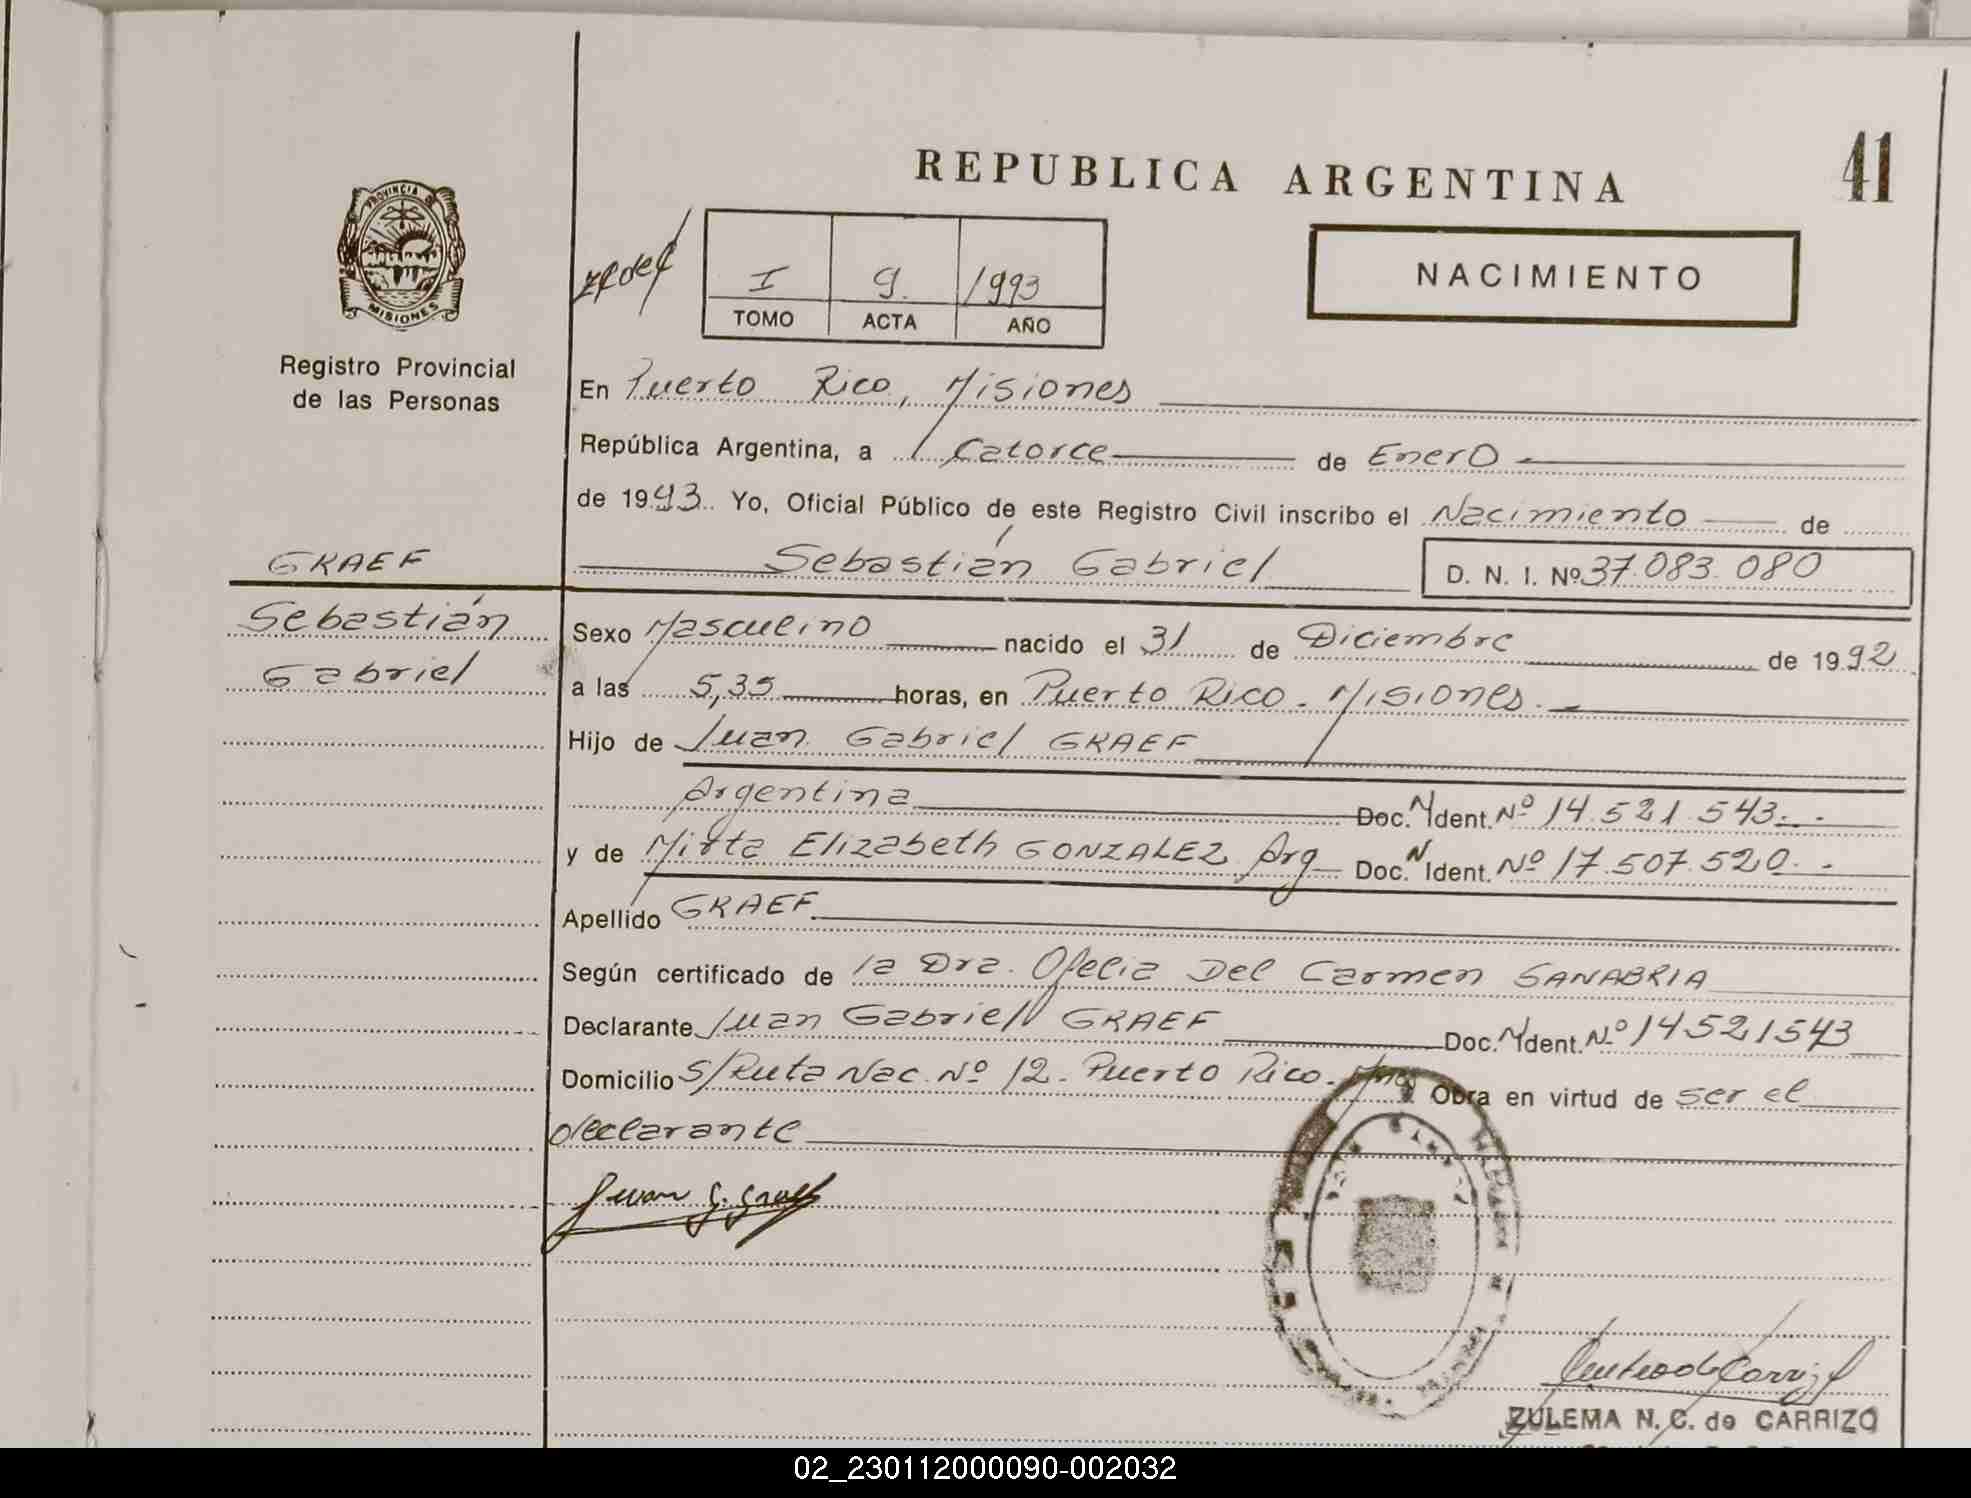 REPUBLICA ARGENTINA
41
PROVINCIA
MISIONES
Registro Provincial
de las Personas
I 9. 1993
TOMO ACTA AÑO
NACIMIENTO
En Puerto Rico, Misiones
República Argentina, a Catorce de Enero
de 1993. Yo, Oficial Público de este Registro Civil inscribo el Nacimiento de
Sebastián Gabriel D. N. I. Nº 37.083.080
GRAEF
Sebastián
Gabriel
Sexo Masculino nacido el 31 de Diciembre de 1992
a las 5,35 horas, en Puerto Rico - Misiones.-
Hijo de Juan Gabriel GRAEF
Argentina Doc. N Ident. Nº 14.521.543.-
y de Mirta Elizabeth GONZALEZ Arg Doc. N Ident. Nº 17.507.520.-
Apellido GRAEF
Según certificado de la Dra. Ofelia Del Carmen SANABRIA
Declarante Juan Gabriel GRAEF Doc. N Ident. Nº 14521543
Domicilio S/Ruta Nac. Nº 12 - Puerto Rico - Mnes Obra en virtud de ser el
declarante
Juan G. Graef
ZULEMA N. C. de CARRIZO
02_230112000090-002032